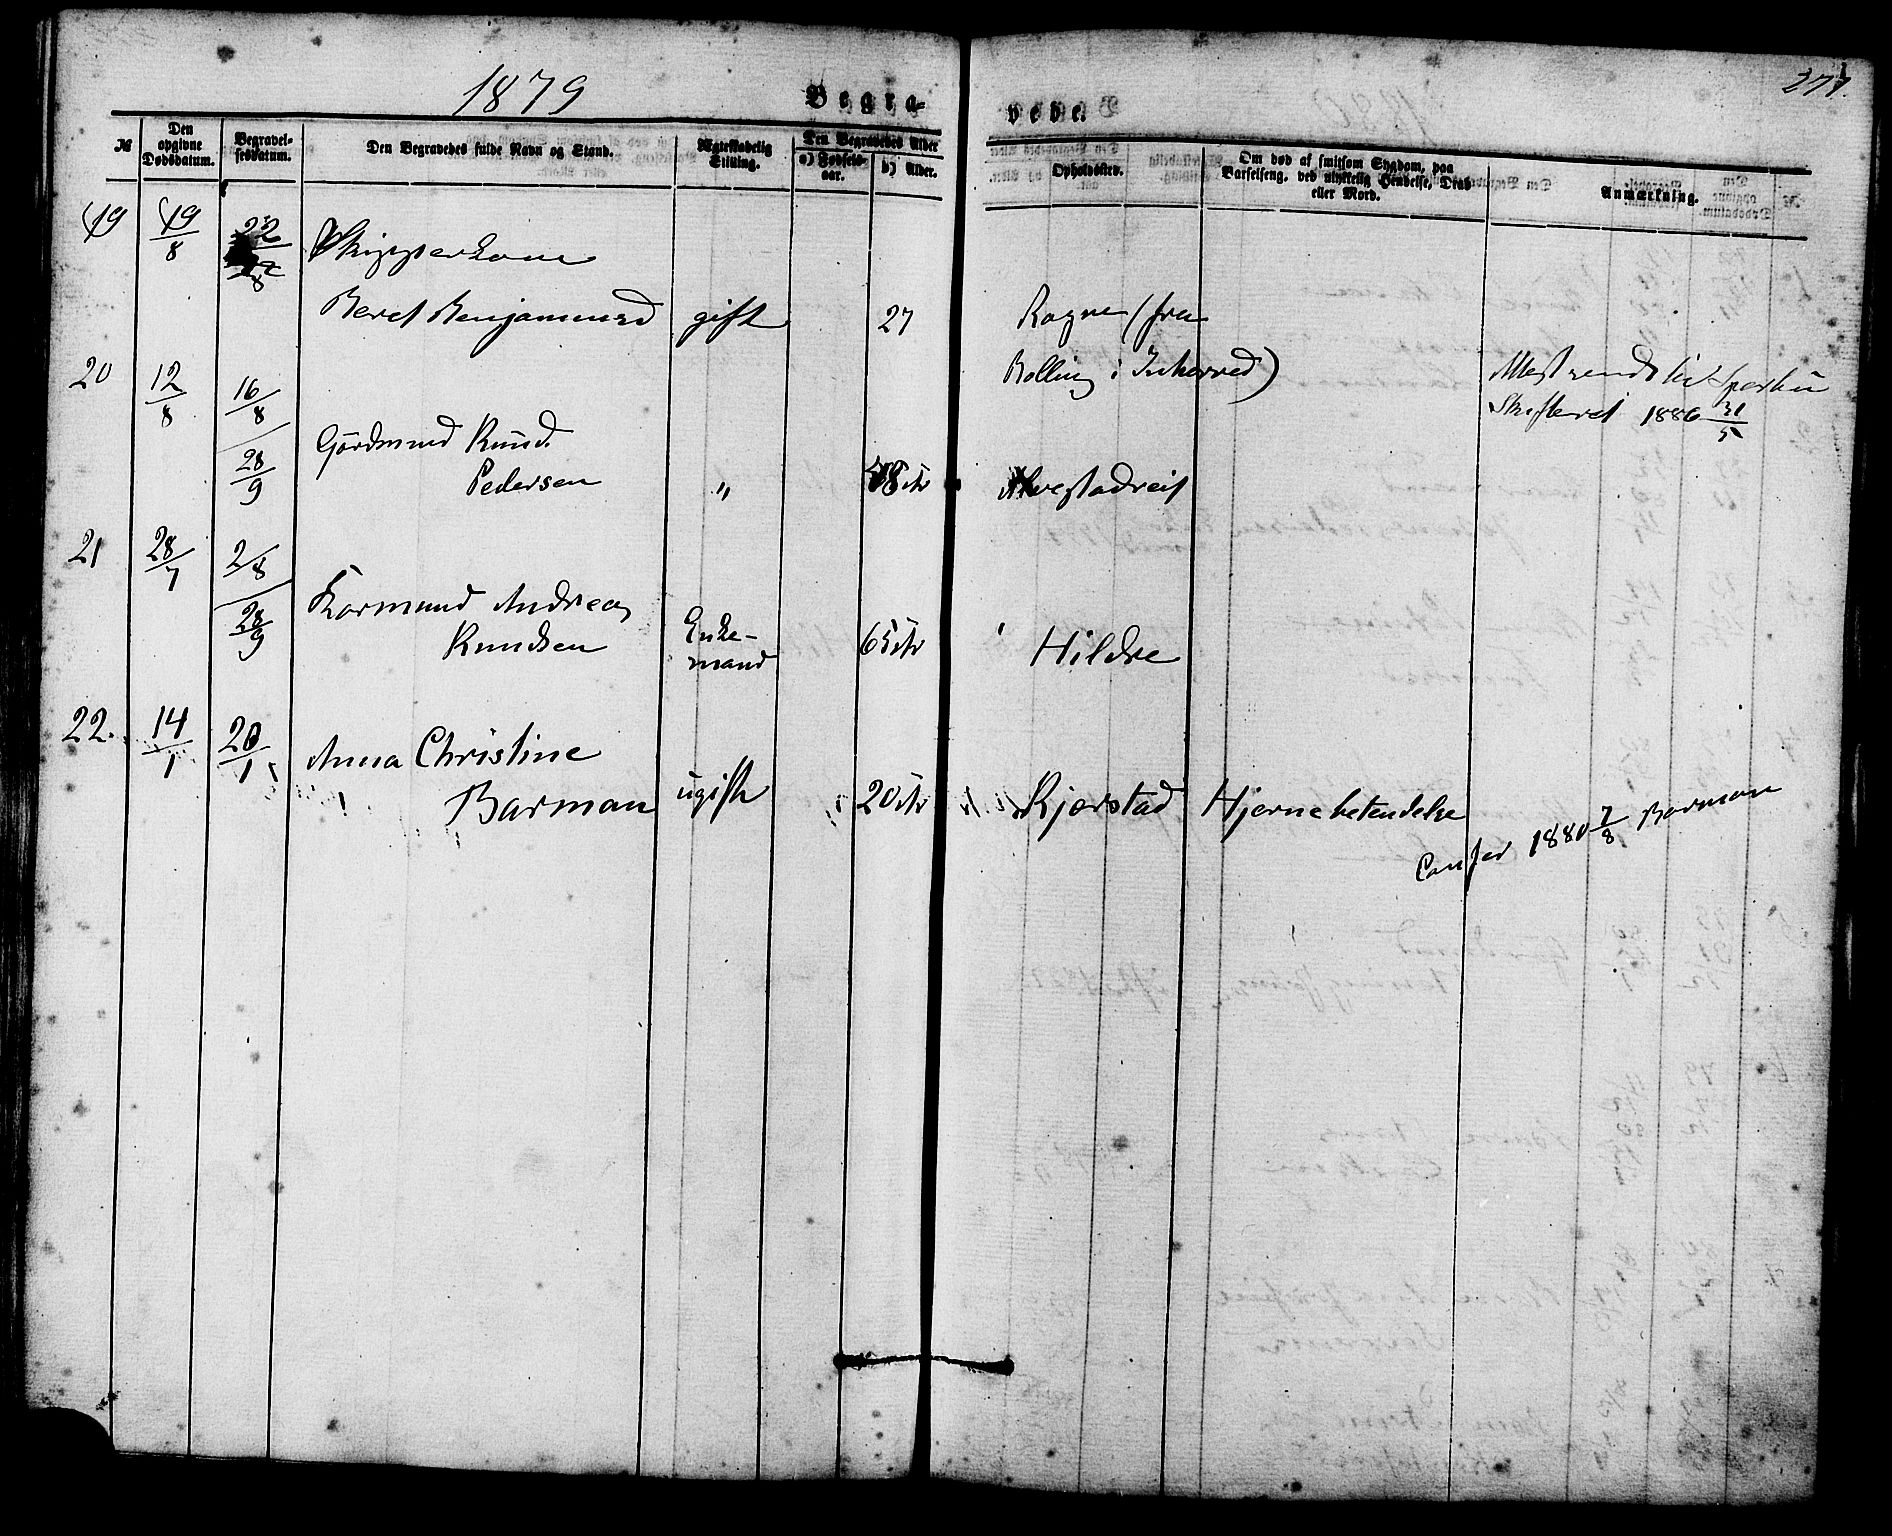 1879
Begra-
vede.
277.
№
Den opgivne Dødsdatum.
Begravel-sesdatum.
Den Begravedes fulde Navn og Stand.
Ægteskabelig Stilling.
Den Begravedes Alder
a) Fødsels-aar.
b) Alder.
Opholdssted.
Om død af smitsom Sygdom, paa Barselseng, ved ulykkelig Hændelse, Drab eller Mord.
Anmærkning.
19 19/8 22/8 Skipperkone
Beret Benjaminsd gift 27 Rogne (fra
Bolling i Inherred)
Attest sendt til
Skifteret 1886 31/5
20 12/8 16/8
28/9
Gördmand Knud
Pedersen " 48 År
21 28/7 2/8
28/9
Kårmand Andreas
Knudsen Enke-
mand 65 År Hildre
22. 14/1 20/1
Anna Christine
Barman ugift 20 År Kjerstad Hjernebetendelse
Confer 1880 7/8 Barman